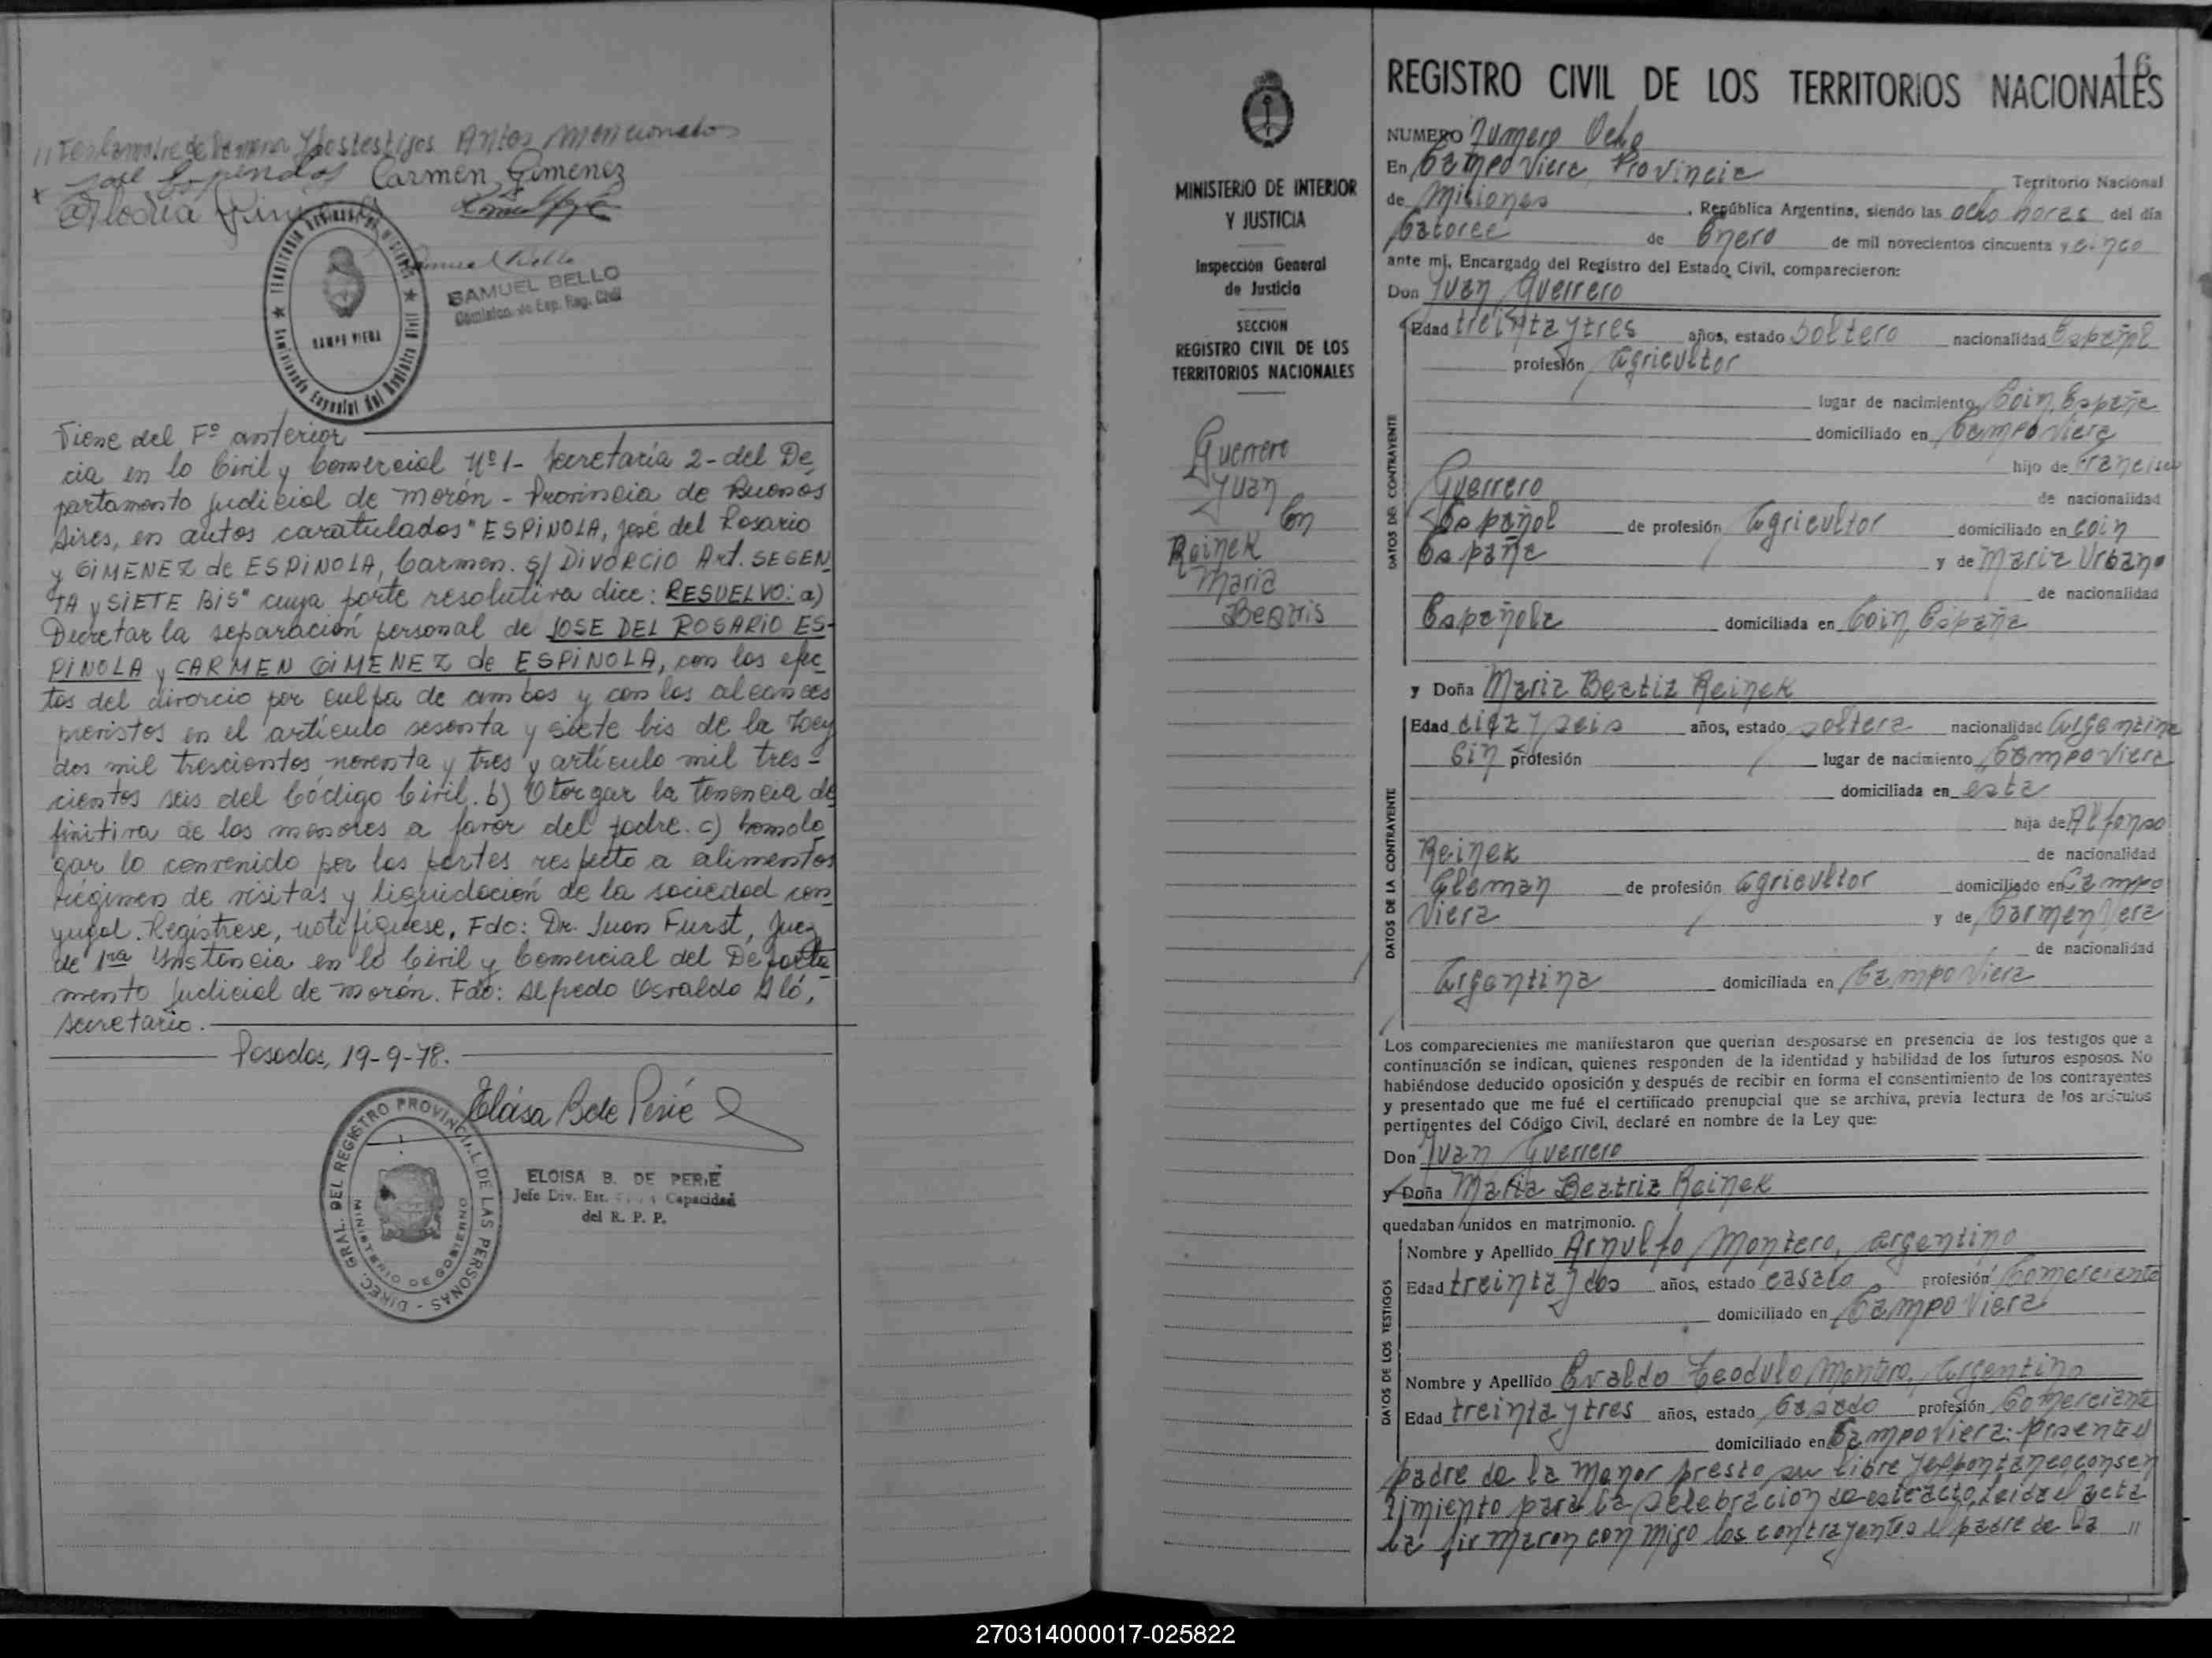 // Testamotre de la menor y los testigos Antes mencionados
x José Espindola Carmen Gimenez
SAMUEL BELLO
Comision. de Esp. Reg. Civil
CAMPO VIERA
Viene del Fº anterior
cia en lo Civil y Comercial Nº 1- Secretaría 2- del De
partamento Judicial de Morón - Provincia de Buenos
Aires, en autos caratulados "ESPINOLA, José del Rosario
y GIMENEZ de ESPINOLA, Carmen. s/ DIVORCIO Art. SESEN
TA y SIETE BIS" cuya parte resolutiva dice: RESUELVO: a)
Decretar la separación personal de JOSE DEL ROSARIO ES-
PINOLA y CARMEN GIMENEZ de ESPINOLA, con los efec
tos del divorcio por culpa de ambos y con los alcances
previstos en el artículo sesenta y siete bis de la Ley
dos mil trescientos noventa y tres y artículo mil tres-
cientos seis del Código Civil. b) Otorgar la tenencia de
finitiva de los menores a favor del padre. c) homolo
gar lo convenido por las partes respecto a alimentos
régimen de visitas y liquidación de la sociedad con
yugal. Regístrese, notifíquese, Fdo: Dr. Juan Furst, Juez
de 1ra Instancia en lo Civil y Comercial del Departa
mento Judicial de Morón. Fdo: Alfredo Osvaldo Aló,
Secretario.
Posadas, 19-9-78.
Eloisa B de Perié
DIREC. GRAL. DEL REGISTRO PROVINCIAL DE LAS PERSONAS
MINISTERIO DE GOBIERNO
ELOISA B. DE PERIÉ
Jefe Div. Est. Capacidad
del R. P. P.
MINISTERIO DE INTERIOR
Y JUSTICIA
Inspección General
de Justicia
SECCION
REGISTRO CIVIL DE LOS
TERRITORIOS NACIONALES
Guerrero
Juan
Con
Reinek
Maria
Beatris
16
REGISTRO CIVIL DE LOS TERRITORIOS NACIONALES
NUMERO Numero Ocho
En Campo Viera Provincia Territorio Nacional
de Misiones, República Argentina, siendo las ocho horas del día
Catorce de Enero de mil novecientos cincuenta y cinco
ante mí, Encargado del Registro del Estado Civil, comparecieron:
Don Juan Guerrero
DATOS DEL CONTRAYENTE
Edad treinta y tres años, estado Soltero nacionalidad Español
profesión agricultor
lugar de nacimiento Coin, España
domiciliado en Campo Viera
hijo de Francisco
Guerrero de nacionalidad
Español de profesión agricultor domiciliado en Coin
España y de Maria Urbano
de nacionalidad
Española domiciliada en Coin, España
y Doña Maria Beatiz Reinek
DATOS DE LA CONTRAYENTE
Edad diez y seis años, estado soltera nacionalidad Argentina
Sin profesión lugar de nacimiento Campo Viera
domiciliada en esta
hija de Alfonso
Reinek de nacionalidad
Aleman de profesión agricultor domiciliado en Campo
Viera y de Carmen Vera
de nacionalidad
Argentina domiciliada en Campo Viera
Los comparecientes me manifestaron que querían desposarse en presencia de los testigos que a
continuación se indican, quienes responden de la identidad y habilidad de los futuros esposos. No
habiéndose deducido oposición y después de recibir en forma el consentimiento de los contrayentes
y presentado que me fué el certificado prenupcial que se archiva, previa lectura de los artículos
pertinentes del Código Civil, declaré en nombre de la Ley que:
Don Juan Guerrero
y Doña Maria Beatriz Reinek
quedaban unidos en matrimonio.
DATOS DE LOS TESTIGOS
Nombre y Apellido Arnulfo Montero, argentino
Edad treinta y dos años, estado casado profesión Comerciante
domiciliado en Campo Viera
Nombre y Apellido Evaldo Teodulo Montero, Argentino
Edad treinta y tres años, estado Casado profesión Comerciante
domiciliado en Campo Viera: Presente el
padre de la menor presto su libre y espontaneo consen
timiento para la celebracion de este acto, leida el acta
la firmaron con migo los contrayentes el padre de la //
270314000017-025822